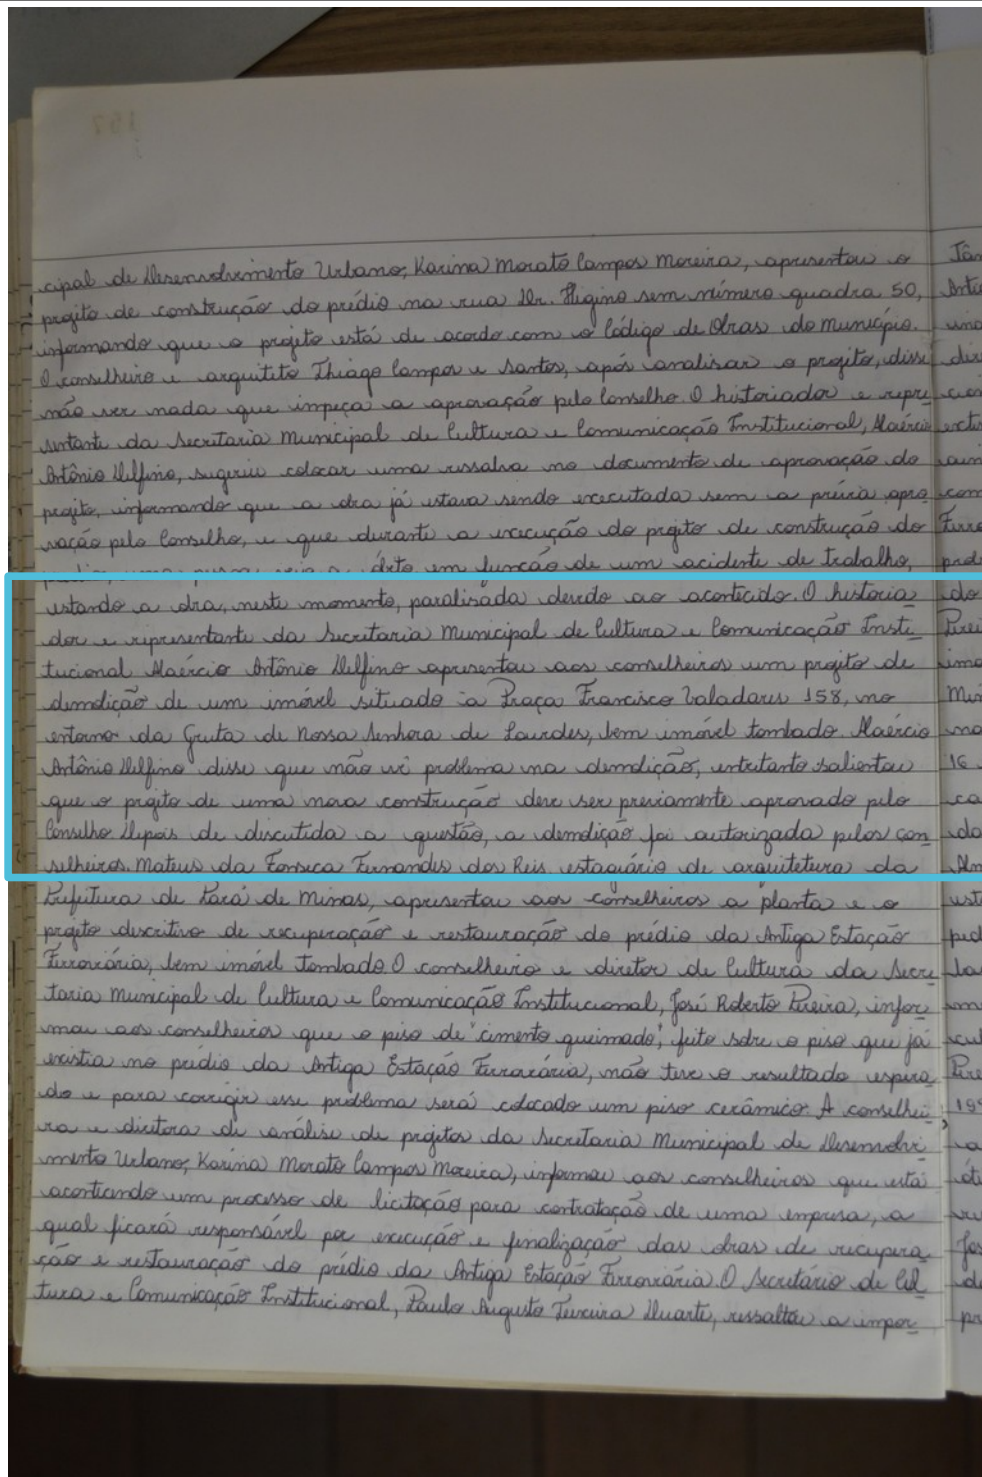 cipal de Desenvolvimento Urbano, Karina Morato Campos Moreira, apresentou o
projeto de construção do prédio na rua Dr. Higino sem número quadra 50,
informando que o projeto está de acordo com o Código de Obras do Município.
O conselheiro e arquiteto Thiago Campos e Santos, após analisar o projeto, disse
não ver nada que impeça a aprovação pelo Conselho. O historiador e repre-
sentante da Secretaria Municipal de Cultura e Comunicação Institucional, Alaércio
Antônio Delfino, sugeriu colocar uma ressalva no documento de aprovação do
projeto, informando que a obra já estava sendo executada sem a prévia apro-
vação pelo Conselho, e que durante a execução do projeto de construção do
prédio, uma pessoa veio a óbito em função de um acidente de trabalho,
estando a obra, neste momento, paralisada devido ao acontecido. O historia-
dor e representante da Secretaria Municipal de Cultura e Comunicação Insti-
tucional Alaércio Antônio Delfino apresentou aos conselheiros um projeto de
demolição de um imóvel situado à Praça Francisco Valadares 158, no
entorno da Gruta de Nossa Senhora de Lourdes, bem imóvel tombado. Alaércio
Antônio Delfino disse que não vê problema na demolição, entretanto salientou
que o projeto de uma nova construção deve ser previamente aprovado pelo
Conselho. Depois de discutida a questão, a demolição foi autorizada pelos con-
selheiros. Mateus da Fonseca Fernandes dos Reis, estagiário de arquitetura da
Prefeitura de Pará de Minas, apresentou aos conselheiros a planta e o
projeto descritivo de recuperação e restauração do prédio da Antiga Estação
Ferroviária, bem imóvel tombado. O conselheiro e diretor de Cultura da Secre-
taria Municipal de Cultura e Comunicação Institucional, José Roberto Pereira, infor-
mou aos conselheiros que o piso de "cimento queimado", feito sobre o piso que já
existia no prédio da Antiga Estação Ferroviária, não teve o resultado espera-
do e para corrigir esse problema será colocado um piso cerâmico. A conselhei-
ra e diretora de análise de projetos da Secretaria Municipal de Desenvolvi-
mento Urbano, Karina Morato Campos Moreira, informou aos conselheiros que está
acontecendo um processo de licitação para contratação de uma empresa, a
qual ficará responsável por execução e finalização das obras de recupera-
ção e restauração do prédio da Antiga Estação Ferroviária. O Secretário de Cul-
tura e Comunicação Institucional, Paulo Augusto Teixeira Duarte, ressaltou a impor-